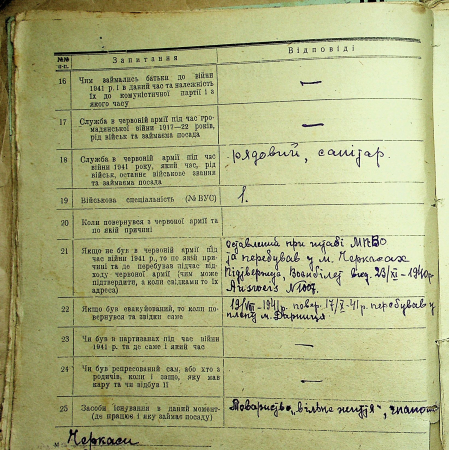 №№ п-п. Запитання Відповіді
16 Чим займались батьки до війни
1941 р. і в даний час та належність
їх до комуністичної партії і з
якого часу —
17 Служба в червоній армії під час гро-
мадянської війни 1917—22 років,
рід військ та займаєма посада —
18 Служба в червоній армії під час
війни 1941 року, який час, рід
військ, останнє військове звання
та займаєма посада рядовий, санітар.
19 Військова спеціальність (№ ВУС) 1.
20 Коли повернувся з червоної армії та
по якій причині
21 Якщо не був в червоній армії під
час війни 1941 р., то по якій при-
чині та де перебував підчас від-
ходу червоної армії (чим може
підтвердити, а коли свідками то їх
адреса)
при штабі
та перебував у м. Черкасах
22 Якщо був евакуйований, то коли по-
вернувся та звідки саме
19/VIII-1941р. повер. 17/X-41р. перебував у
м. Дарниця
23 Чи був в партизанах під час війни
1941 р. та де саме і який час —
24 Чи був репресований сам, або хто з
родичів, коли і защо, яку має
кару та чи відбув її —
25 Засоби існування в даний момент
(де працює і яку займає посаду) Товариство „вільне життя",
м. Черкаси